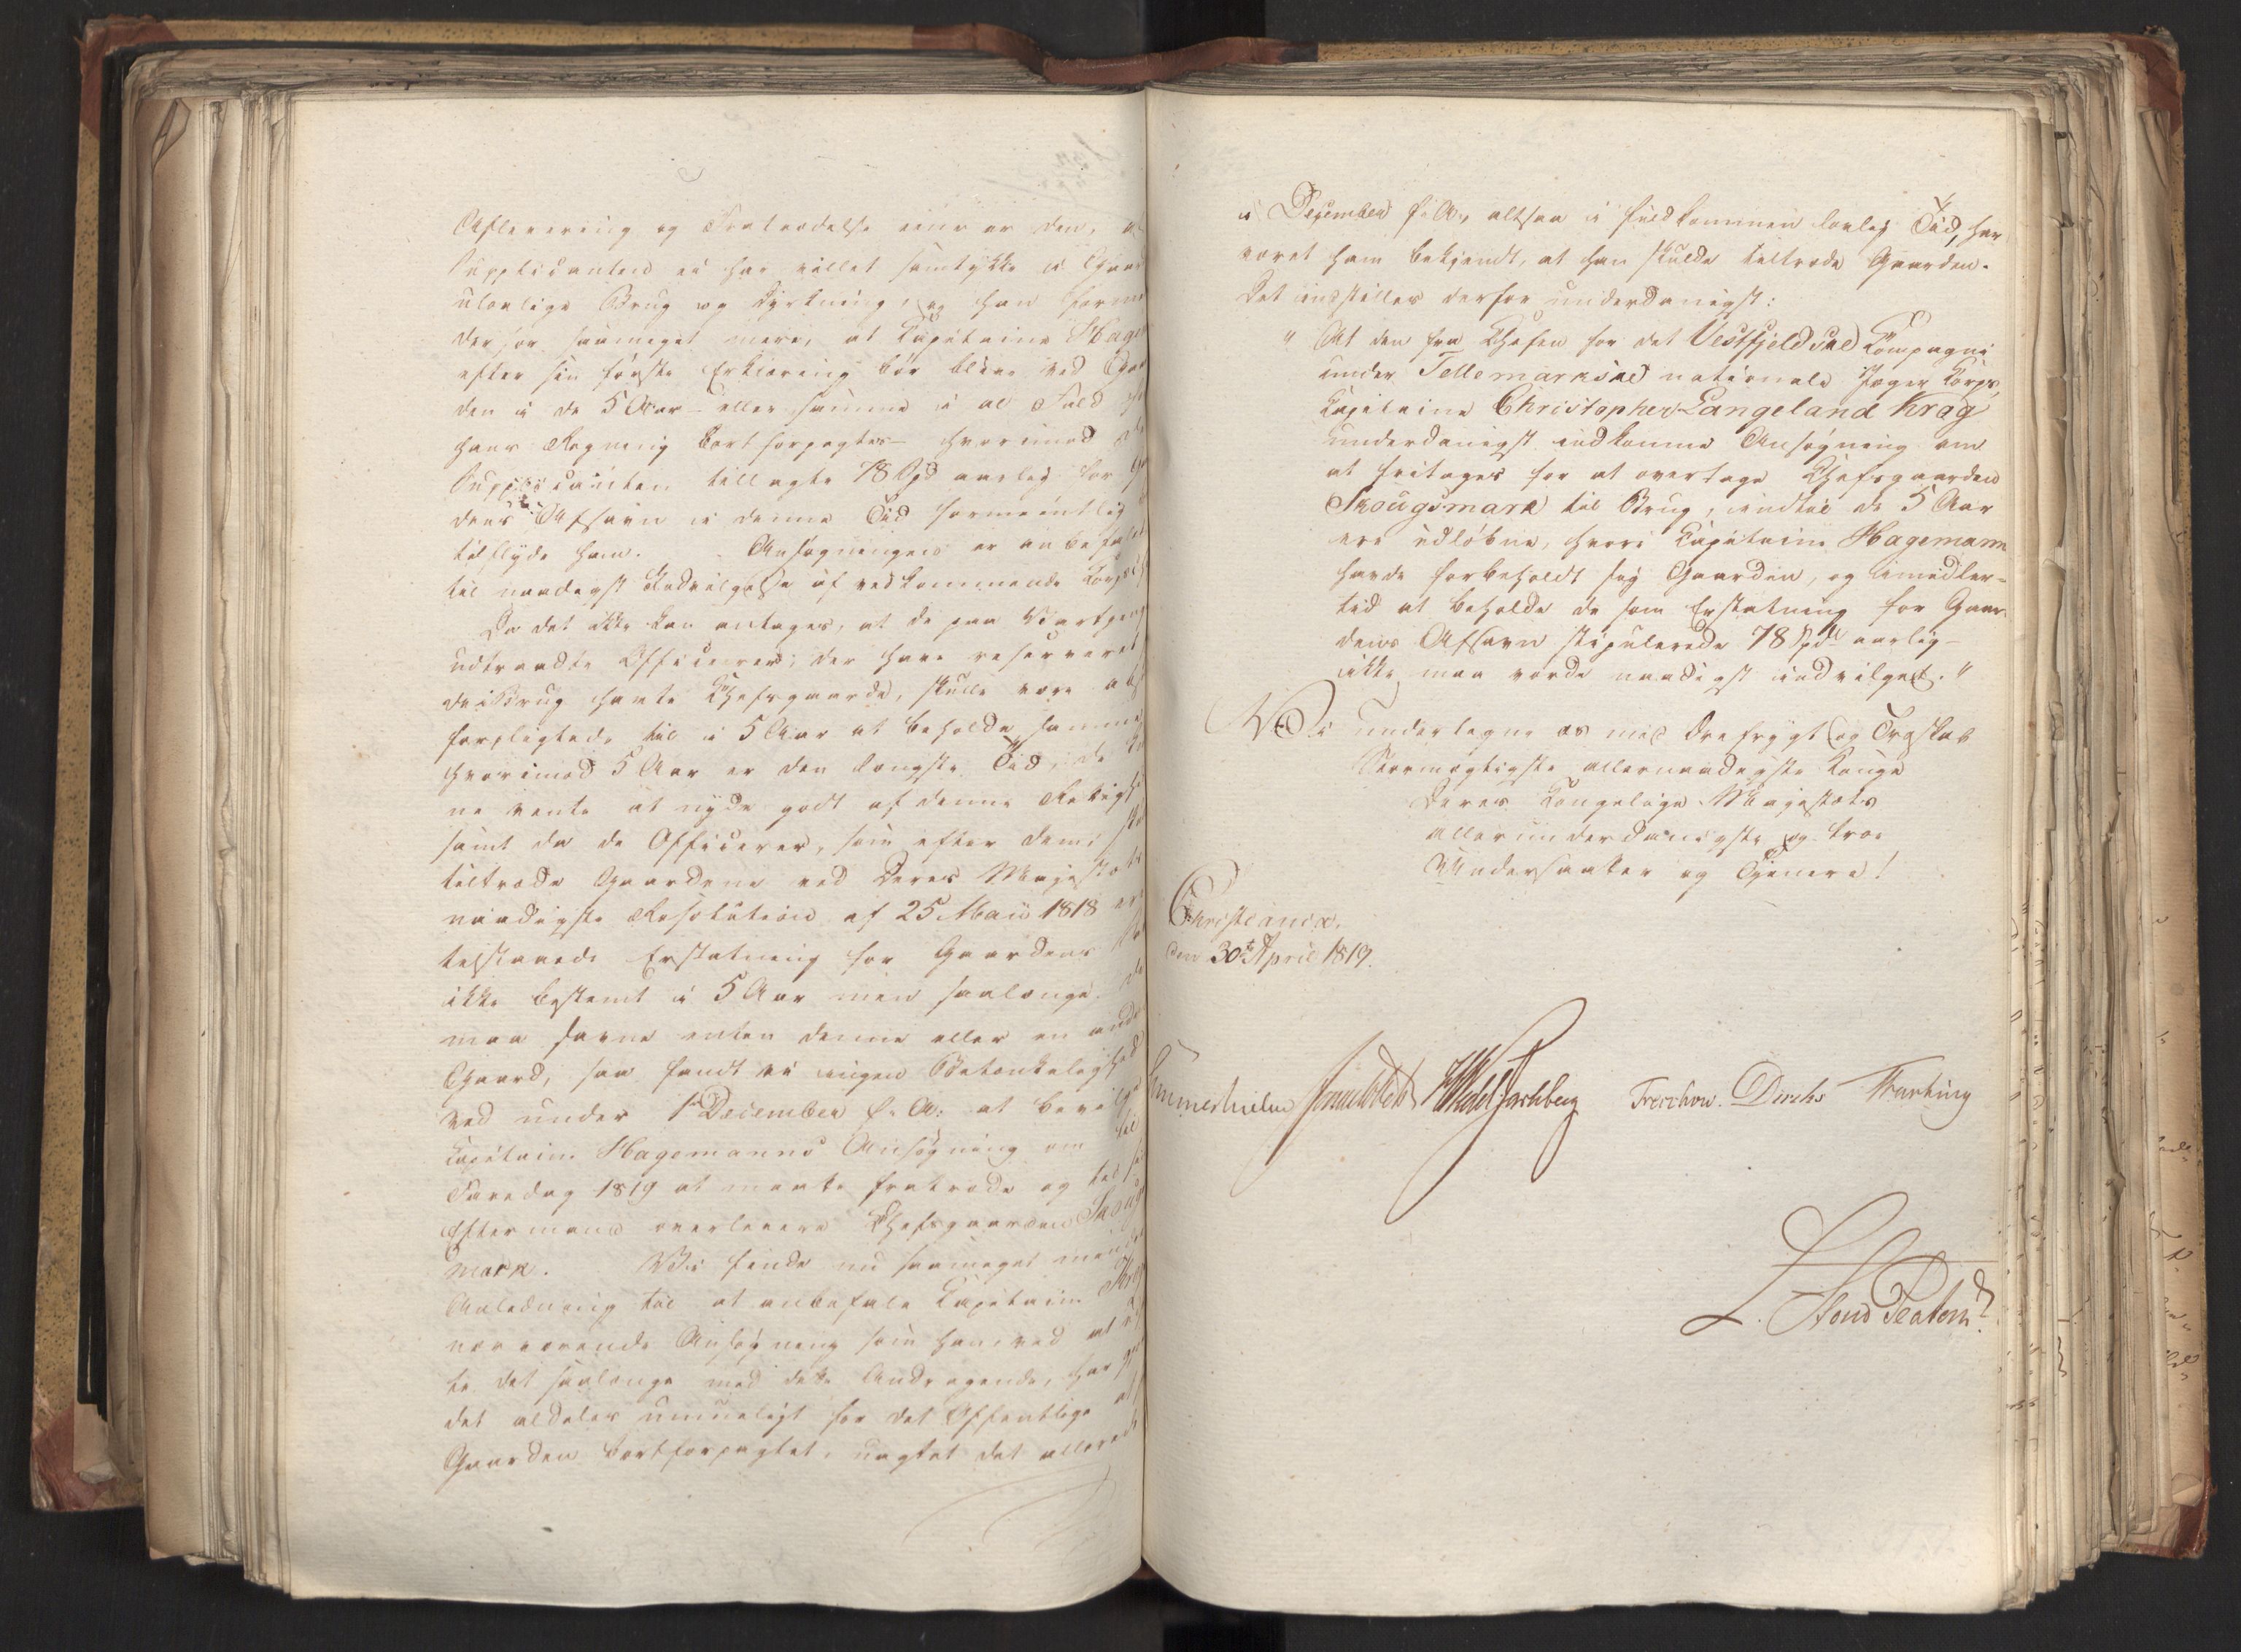 Aflevering og Fratrædelse einer den, at
Supplicanten ei har villet samtykke i Gaar
ulovlige Brug og Dyrkning, og han formener
derfor saameget mere, at Capitaine Hagem
efter sin første Erklæring bør blive ved Gaar
den i de 5 Aar – eller samme i al Fald
hans Regning bortforpagtes – hvorimod de
Supplicanten tillagte 78 Spd aarlig for Gaar
dens Afsavn i denne Tid formeentlig
tilflyde ham. Ansøgningen er anbefalet
til naadigst Indvilgelse af vedkommende Korps
Da det ikke kan antages, at de paa Vartpenge
udtraadte Officierer, der have reserveret
dem i Brug havte Chefsgaarde, skulle være
forpligtede til i 5 Aar at beholde samme,
hvorimod 5 Aar er den længste Tid, de
ne vente at nyde godt af denne Rettighed
samt da de Officierer, som efter dem skulle
tiltræde Gaardene ved Deres Majestæts
naadigste Resolution af 25 Maii 1818 er
tilstaaede Erstatning for Gaardens
ikke bestemt i 5 Aar men saalænge de
maa savne enten denne eller en anden
Gaard, saa fandt vi ingen Betænkelighed
ved under 1ste December f: A: at bevilge
Capitaine Hagemanns Ansøgning om til
Faredag 1819 at maatte fratræde og til sin
Eftermand overlevere Chefsgaarden Skougs
mark. Vi finde nu saameget mindre
Anledning til at anbefale Capitain Krag
nærværende Ansøgning som han ved at
te det saalænge med dette Andragende, har gjort
det aldeles umueligt for det Offentlige at
Gaarden bortforpagtet, uagtet det allerede
i December f: A:, altsaa i fuldkommen lovlig Tid, har
været ham bekjendt, at han skulde tiltræde Gaarden.
Det indstilles derfor underdanigst:
" At den fra Chefen for det Vestfjeldske Compagni
under Tellemarkske nationale Jæger Corps,
Capitaine Christopher Langeland Krag
underdanigst indkomne Ansøgning om
at fritages for at overtage Chefsgaarden
Skougsmark til Brug, indtil de 5 Aar
ere udløbne, hvori Capitaine Hagemann
havde forbeholdt sig Gaarden, og imidler-
tid at beholde de som Erstatning for Gaar-
dens Afsavn stipulerede 78 Spd aarlig –
ikke maa vorde naadigst indvilget. "
Vi underlegne os med Ærefrygt og Troskab
Stormægtigste allernaadigste Konge
Deres Kongelige Majestæts
allerunderdanigste og troe
Undersaatter og Tjenere!
Christiania,
den 30te April 1819.
Sommerhielm HWedel Jarlsberg Treschow. Diriks Krarting
L. Stoud Platou